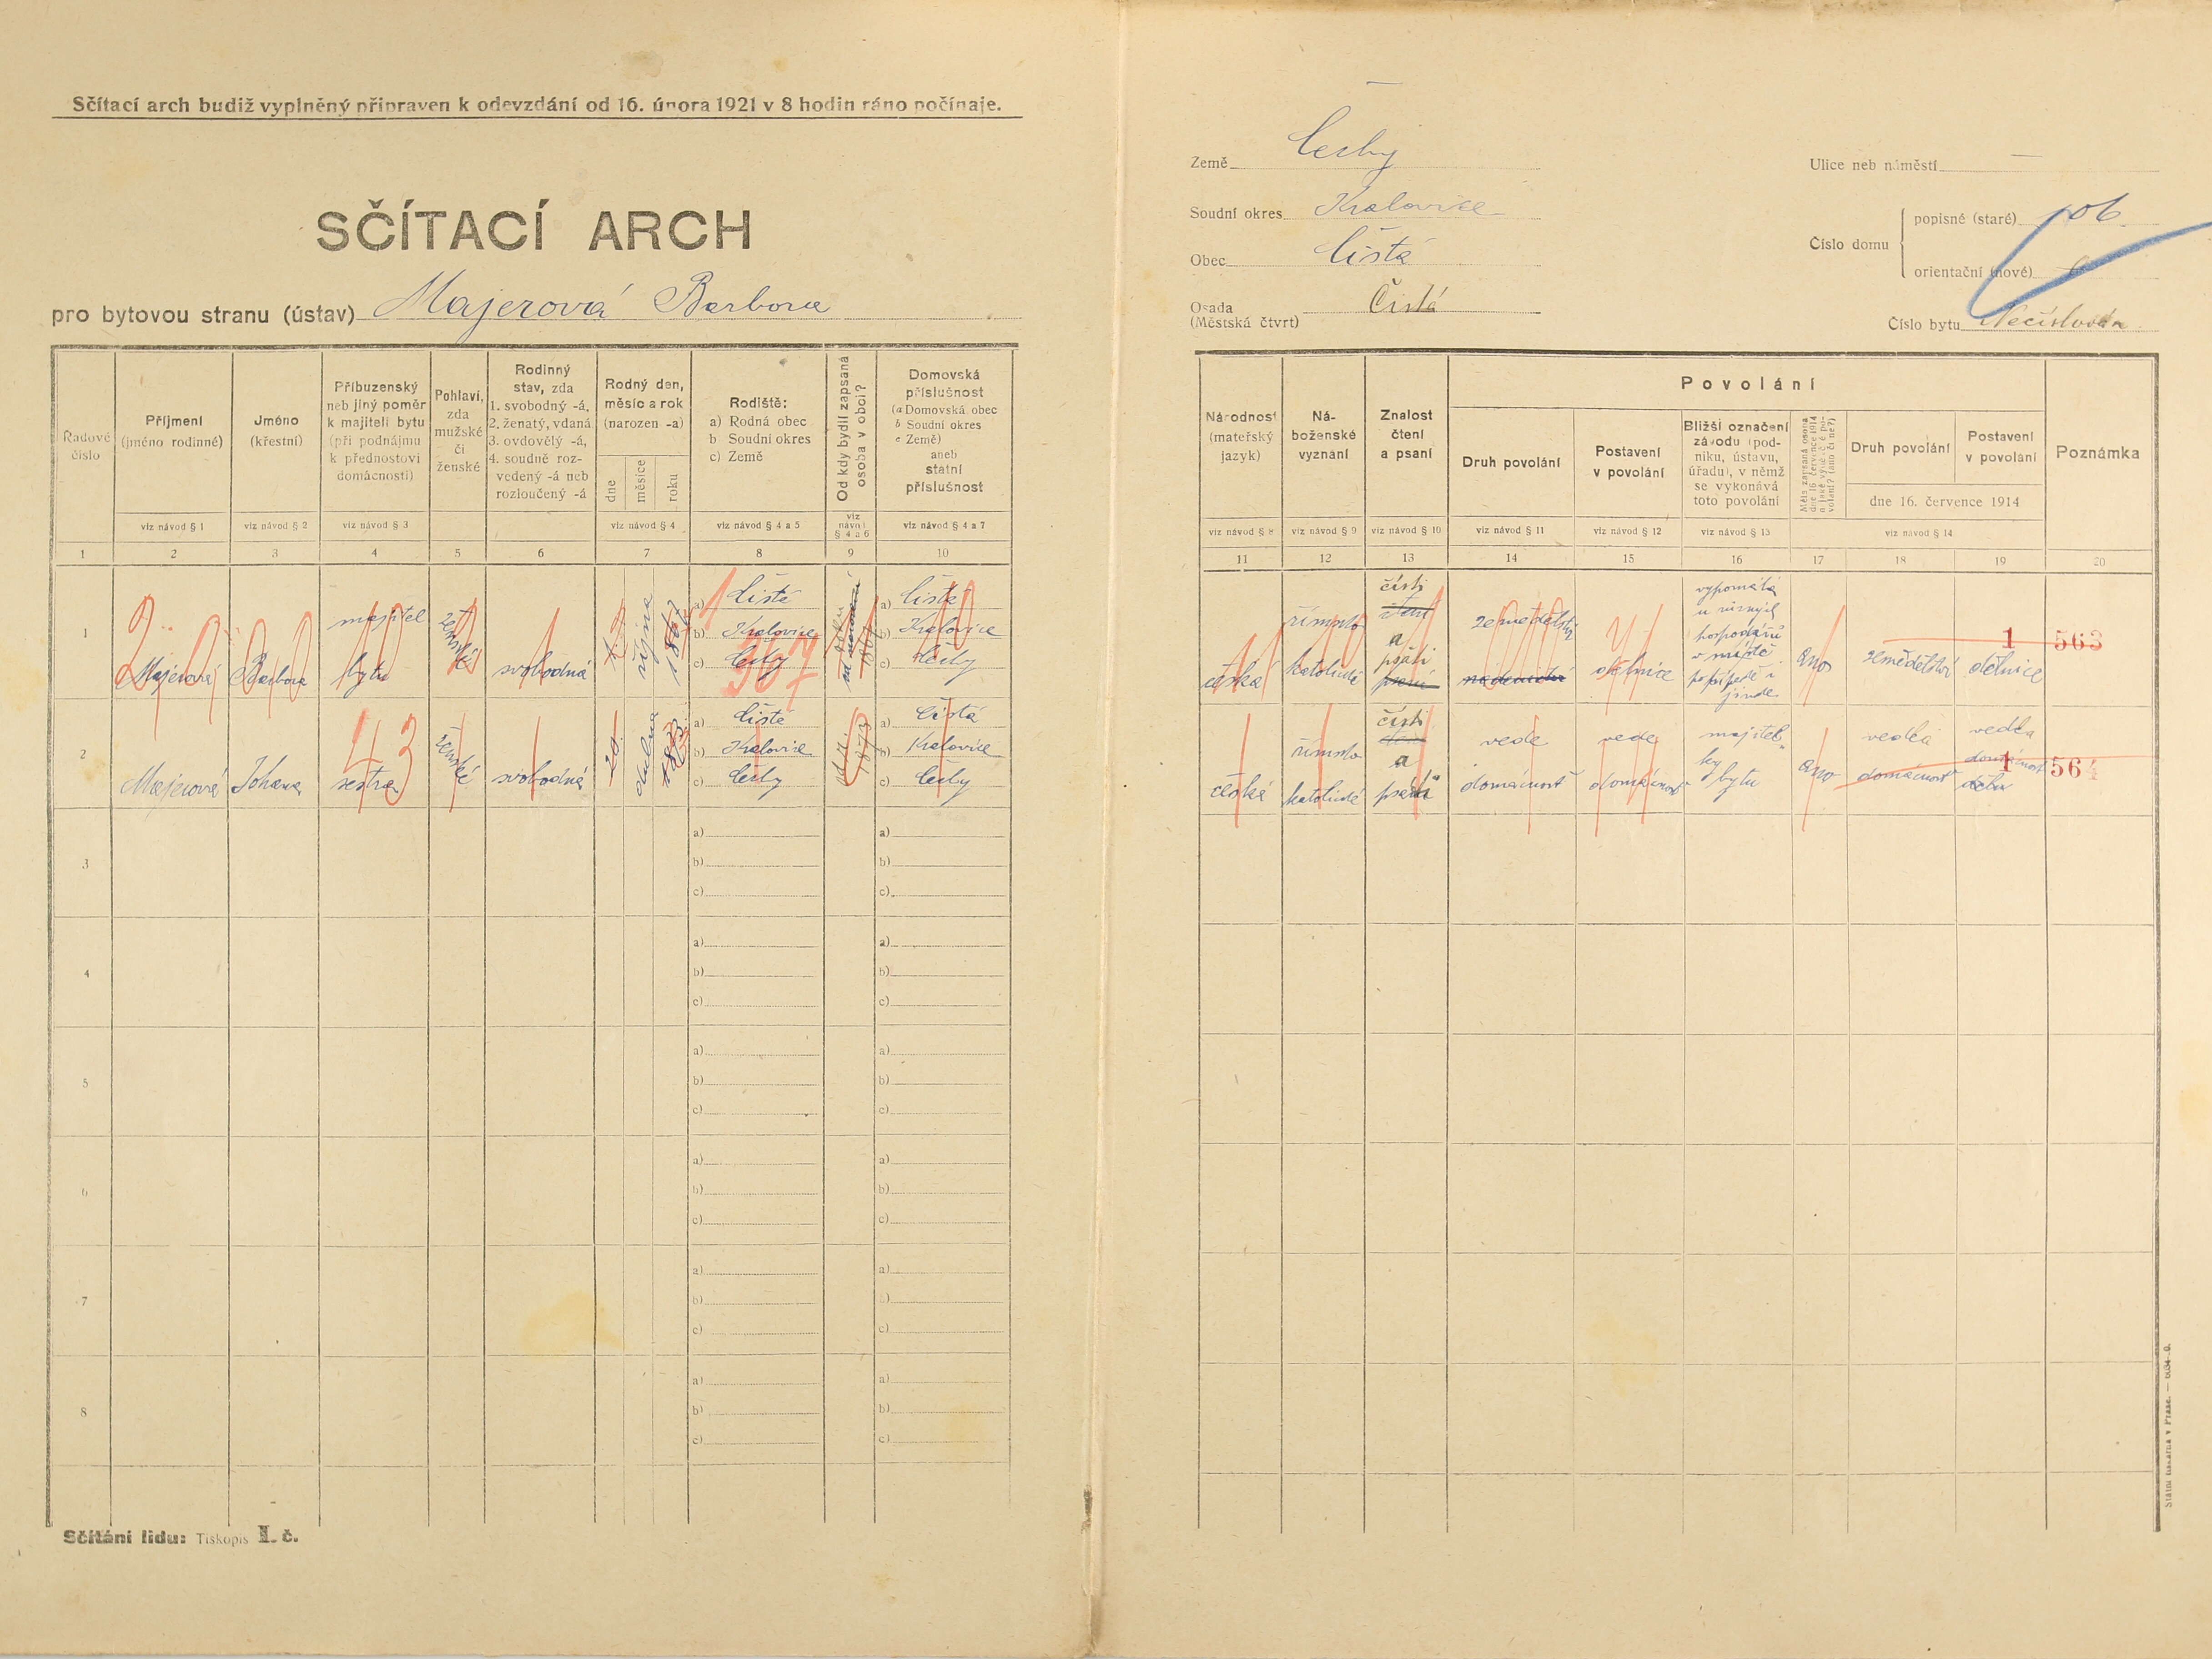 Sčítací arch budiž vyplněný připraven k odevzdání od 16. února 1921 v 8 hodin ráno počínaje.
SČÍTACÍ ARCH
pro bytovou stranu (ústav) Majerová Barbora
Země Čechy
Soudní okres Kralovice
Obec Čistá
Osada
(Městská čtvrt) Čistá
Ulice neb náměstí —
Číslo domu
popisné (staré) 106
orientační (nové)
Číslo bytu Nečíslován
Řadové
číslo
Příjmení
(jméno rodinné)
Jméno
(křestní)
Příbuzenský
neb jiný poměr
k majiteli bytu
(při podnájmu
k přednostovi
domácnosti)
Pohlaví,
zda
mužské
či
ženské
Rodinný
stav, zda
1. svobodný -á,
2. ženatý, vdaná
3. ovdovělý -á,
4. soudně roz-
vedený -á neb
rozloučený -á
Rodný den,
měsíc a rok
(narozen -a)
dne
měsíce
roku
Rodiště:
a) Rodná obec
b Soudní okres
c) Země
Od kdy bydlí zapsaná
osoba v obci?
Domovská
příslušnost
(a Domovská obec
b Soudní okres
c Země)
aneb
státní
příslušnost
viz návod § 1
viz návod § 2
viz návod § 3
viz návod § 4
viz návod § 4 a 5
viz
návod
§ 4 a 6
viz návod § 4 a 7
1 2 3 4 5 6 7 8 9 10
Národnost
(mateřský
jazyk)
Ná-
boženské
vyznání
Znalost
čtení
a psaní
Povolání
Druh povolání
Postavení
v povolání
Bližší označení
závodu (pod-
niku, ústavu,
úřadu), v němž
se vykonává
toto povolání
Měla zapsaná osoba
dne 16 července 1914
nějaké výdělečné po-
volání? (ano či ne?)
Druh povolání
Postavení
v povolání
dne 16. července 1914
Poznámka
viz návod § 8
viz návod § 9
viz návod § 10
viz návod § 11
viz návod § 12
viz návod § 13
viz návod § 14
11 12 13 14 15 16 17 18 19 20
1
Majerová
Barbora
majitel
bytu
ženské
svobodná
října
1867
a) Čistá
b) Kralovice
c) Čechy
367
od narození
a) Čistá
b) Kralovice
c) Čechy
česká
římsko
katolické
čísti
a
psáti
zemědělství
dělnice
vypomáhá
u různých
hospodářů
v místě
popřípadě i
jinde
ano
zemědělství
dělnice
1
563
2
Majerová
Johana
sestra
43
ženské
svobodná
20.
dubna
1873
a) Čistá
b) Kralovice
c) Čechy
a) Čistá
b) Kralovice
c) Čechy
česká
římsko
katolické
čísti
a
psáti
vede
domácnost
vede
domácnost
majitel-
ky
bytu
ano
vedla
domácnost
vedla
domácnost
1
564
3
a)
b)
c)
a)
b)
c)
4
a)
b)
c)
a)
b)
c)
5
a)
b)
c)
a)
b)
c)
6
a)
b)
c)
a)
b)
c)
7
a)
b)
c)
a)
b)
c)
8
a)
b)
c)
a)
b)
c)
Sčítání lidu: Tiskopis I. č.
Státní tiskárna v Praze.